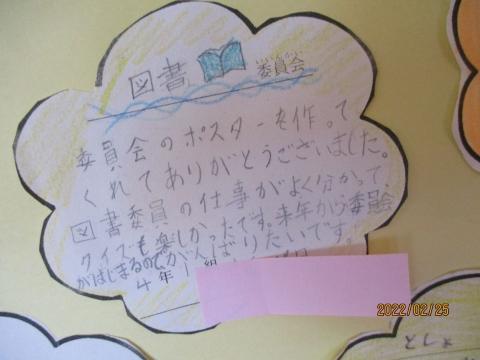 図書 委員会
委員会のポスターを作って
くれてありがとうございました。
図書委員の仕事がよく分かって、
クイズも楽しかったです。来年から委員会
がはじまるのでがんばりたいです。
4年1組
2022/02/25